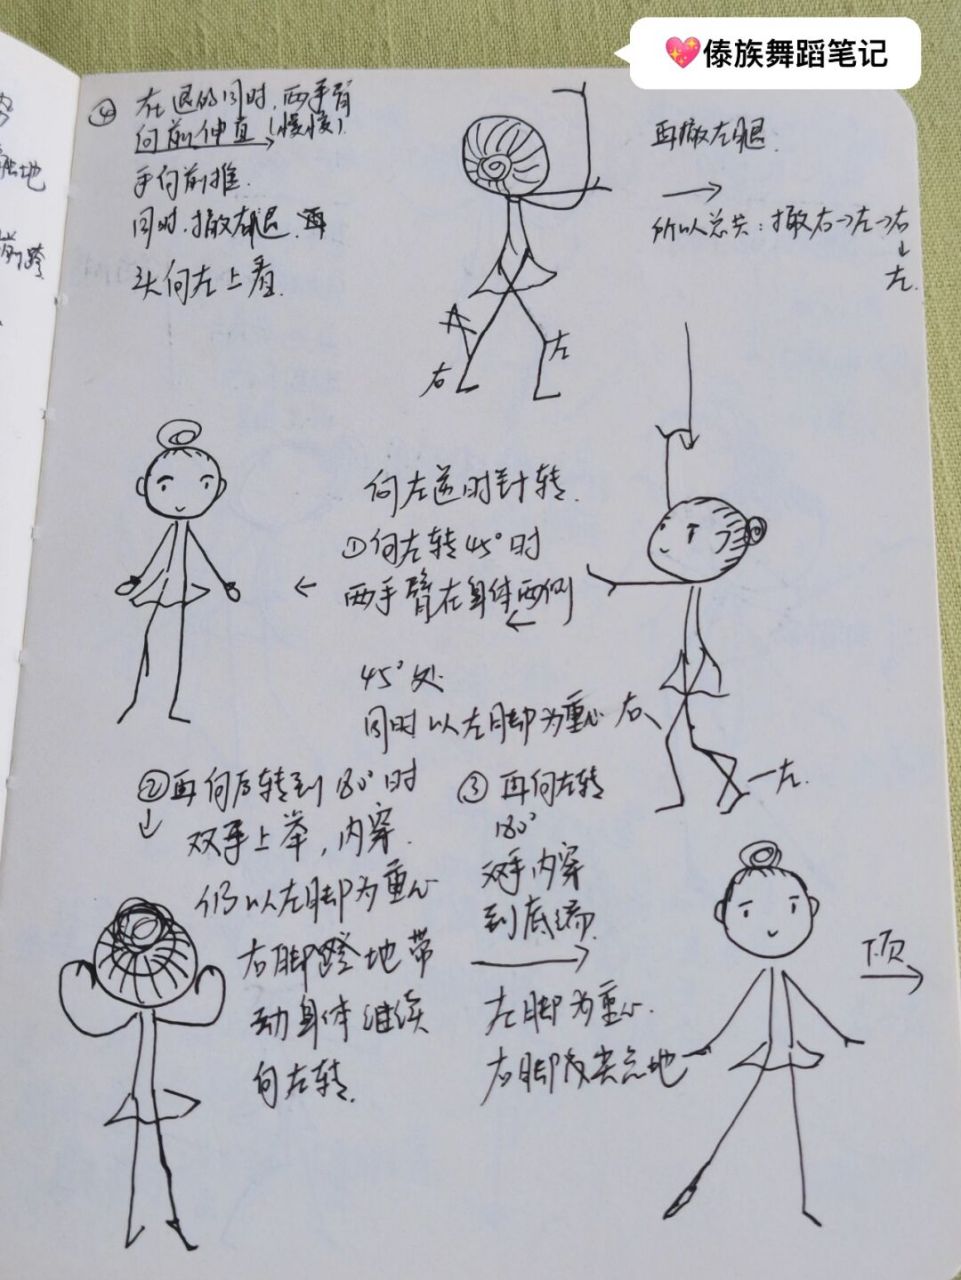 💖傣族舞蹈笔记
④ 在退的同时,两手臂
向前伸直(慢慢)
手向前推.
同时,撤右腿.再
头向左上看.
再撤左腿.
所以总共:撤右→左→右
↓
左.
右
左
触地
前跨
向左逆时针转.
①向左转45°时
两手臂在身体两侧
45°处
同时以左脚为重心
右
左.
②再向后转到180°时
双手上举,内穿.
仍以左脚为重心
右脚蹬地带
动身体继续
向左转.
③再向左转
180°
双手内穿
到底端.
左脚为重心.
右脚点地
下页